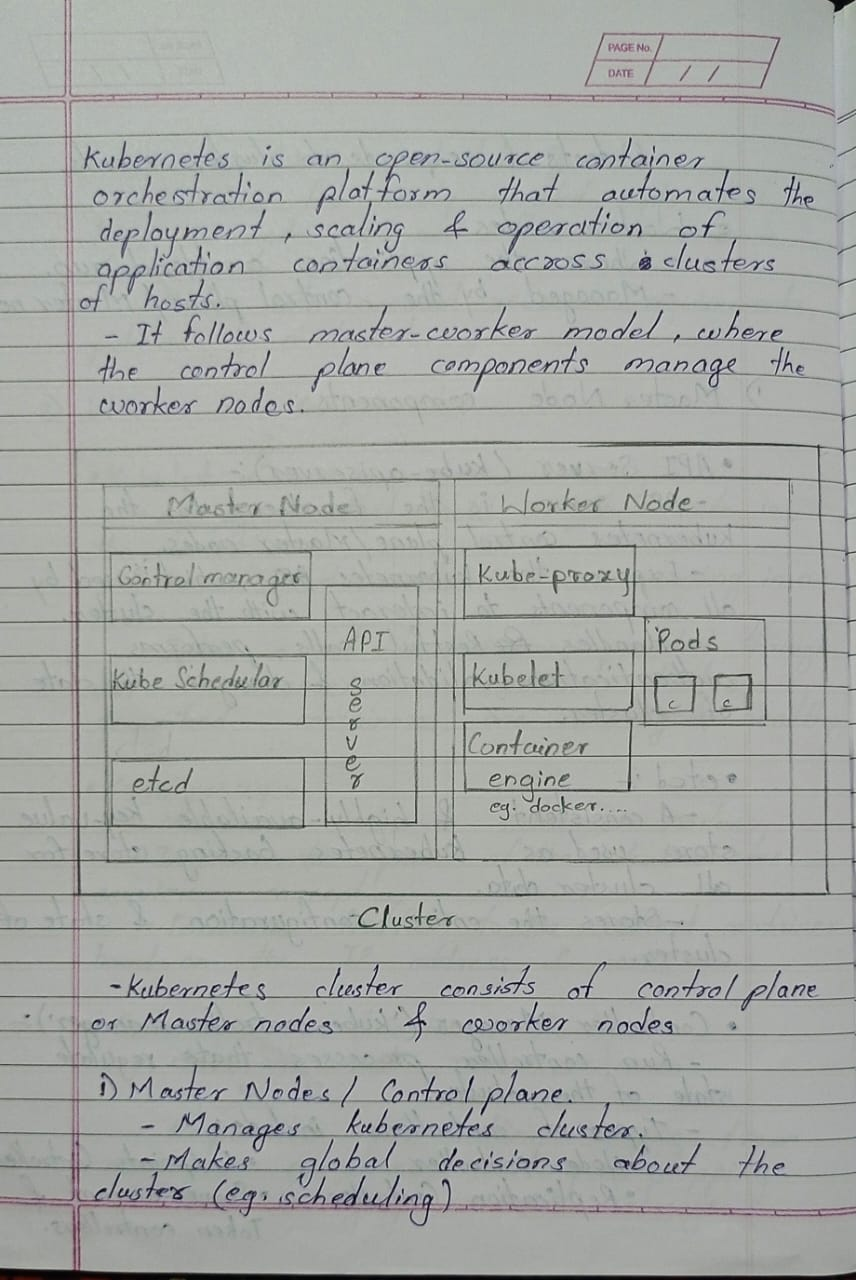 PAGE No.
DATE / /
Kubernetes is an open-source container
orchestration platform that automates the
deployment, scaling & operation of
application containers accross clusters
of hosts.
- It follows master-worker model, where
the control plane components manage the
worker nodes.
Master Node
Worker Node
Control manager
Kube-proxy
API
Server
Pods
Kube Schedular
Kubelet
c c
Container
engine
etcd
eg: docker....
Cluster
- Kubernetes cluster consists of control plane
or Master nodes & worker nodes
i) Master Nodes / Control plane.
- Manages kubernetes cluster.
- Makes global decisions about the
cluster (eg: scheduling)